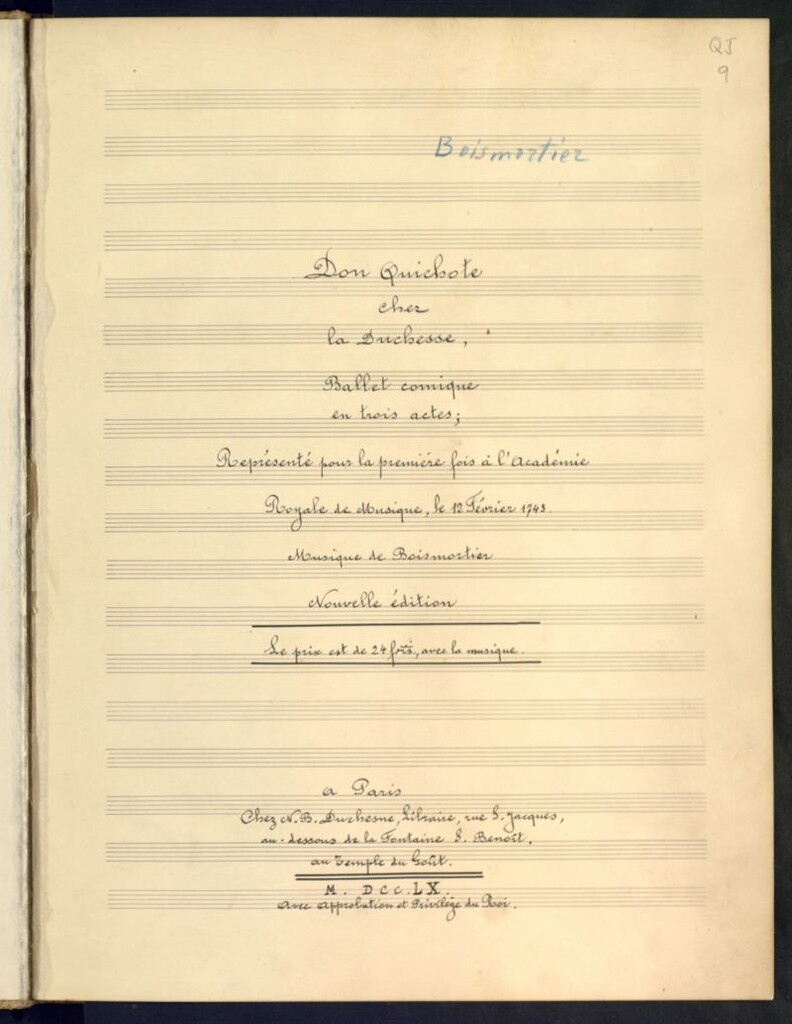 QJ
9
Boismortier
Don Quichote
chez
la Duchesse,
Ballet comique
en trois actes;
Représenté pour la première fois à l'Académie
Royale de Musique, le 12 Février 1743.
Musique de Boismortier
Nouvelle édition
Le prix est de 24 , avec la musique.
a Paris
Chez N. B. Duchesne, Libraire, rue S. Jacques,
au-dessous de la Fontaine S. Benoît,
au Temple du Goût.
M. DCC. LX.
Avec Approbation et Privilège du Roi.